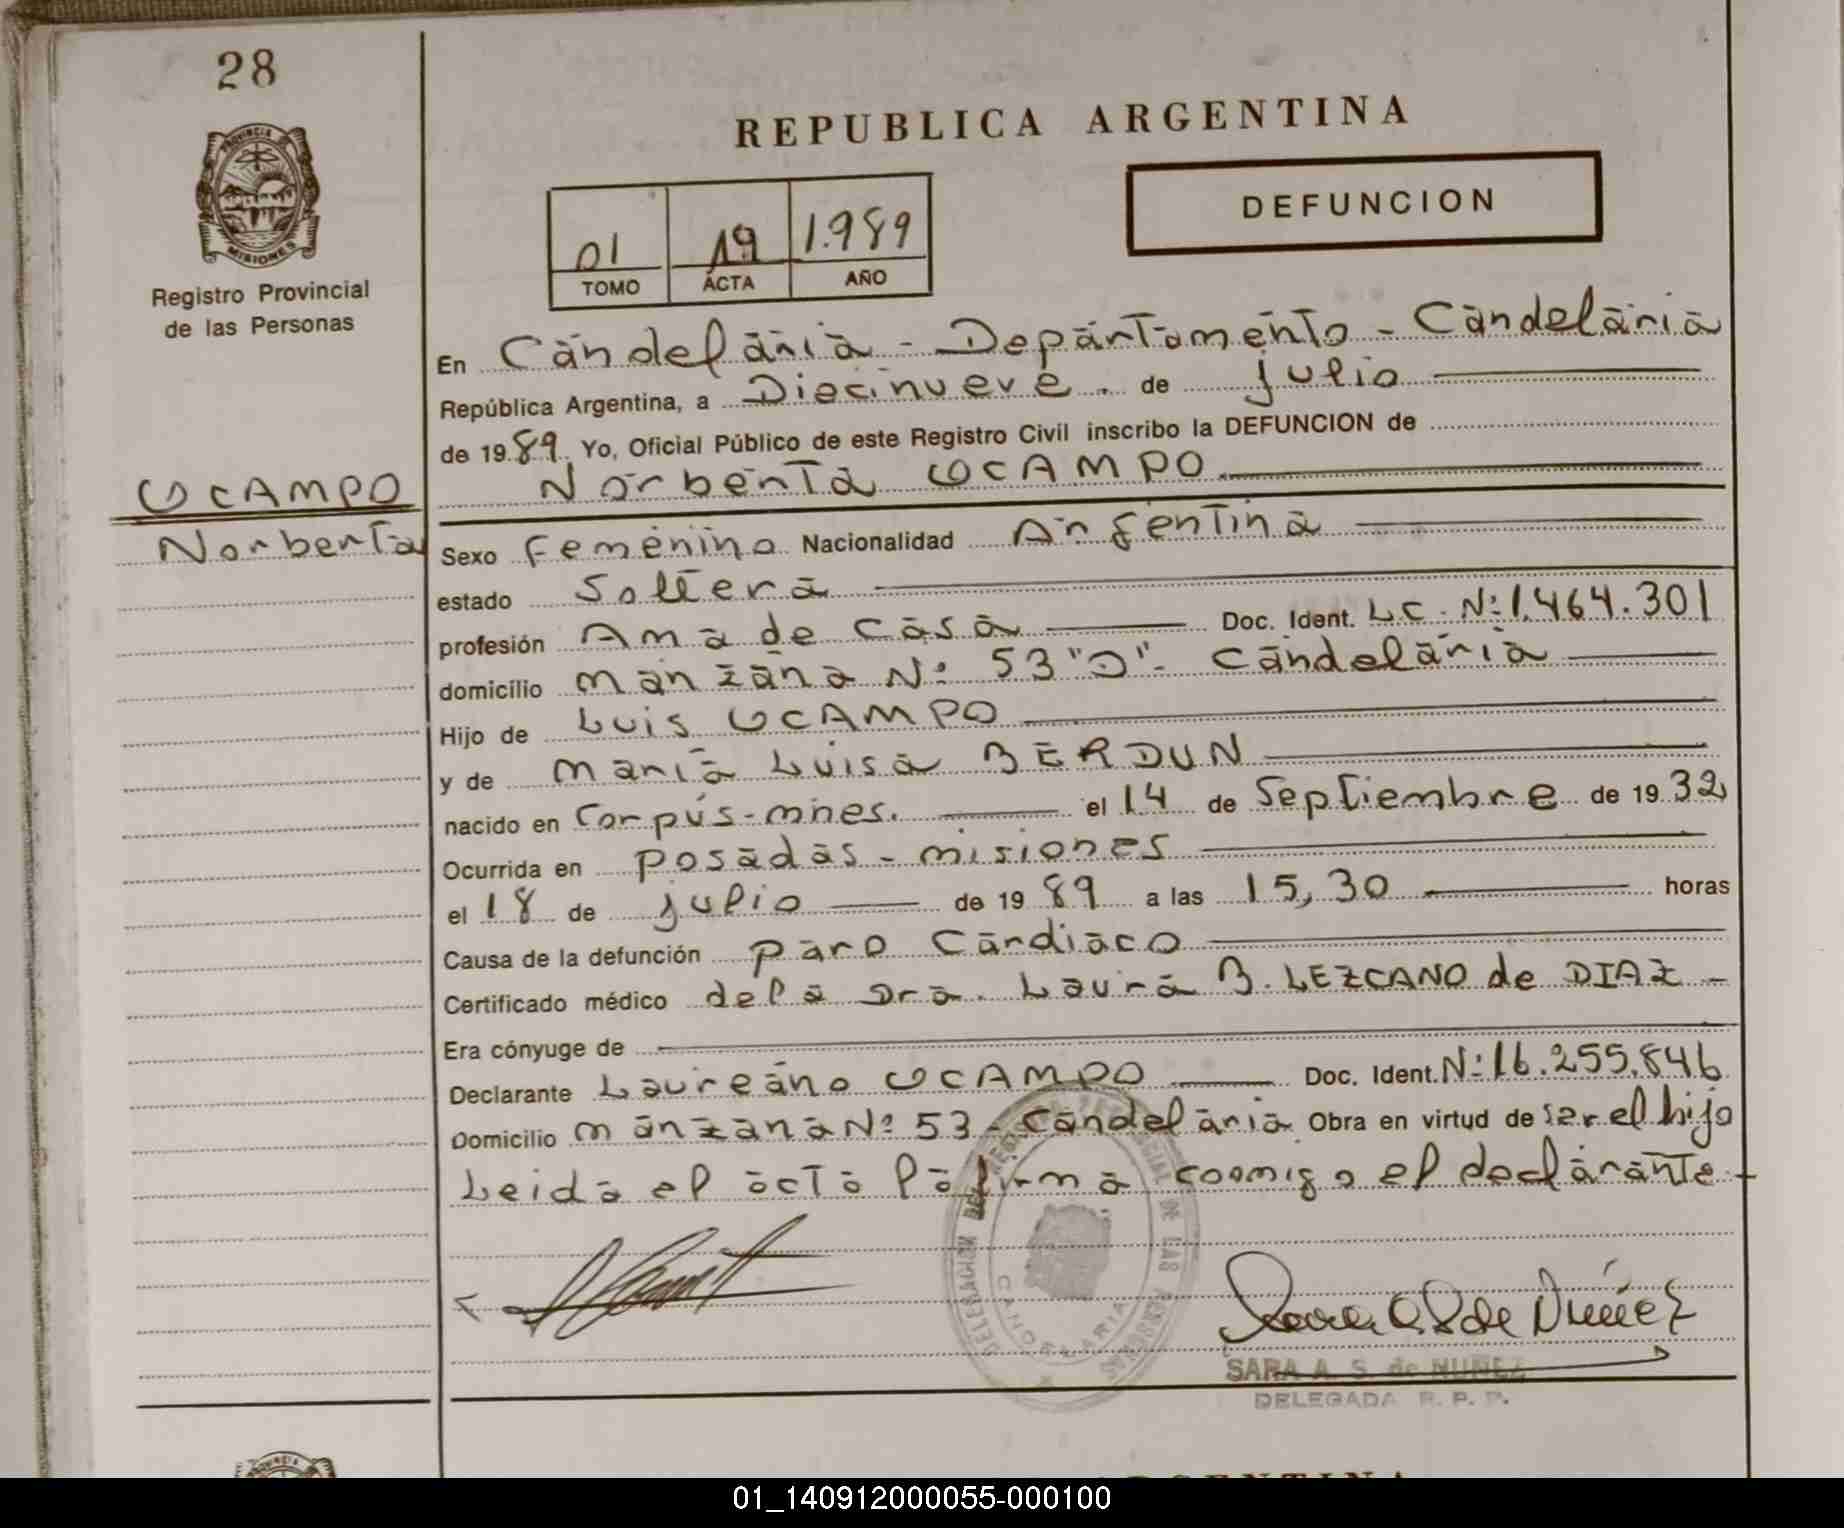 28
PROVINCIA DE
MISIONES
Registro Provincial
de las Personas
OCAMPO
Norberta
REPUBLICA ARGENTINA
01 19 1.989
TOMO ACTA AÑO
DEFUNCION
En Candelaria - Departamento - Candelaria
República Argentina, a Diecinueve. de julio
de 1989. Yo, Oficial Público de este Registro Civil inscribo la DEFUNCION de
Norberta OCAMPO
Sexo Femenino Nacionalidad Argentina
estado Soltera
profesión Ama de casa Doc. Ident. L.C. Nº 1.464.301
domicilio manzana Nº 53 "D". Candelaria
Hijo de Luis OCAMPO
y de Maria Luisa BERDUN
nacido en Corpús-mnes. el 14 de Septiembre de 1932
Ocurrida en posadas - misiones
el 18 de julio de 1989 a las 15,30 horas
Causa de la defunción paro Cardiaco
Certificado médico de la Dra. Laura B. LEZCANO de DIAZ -
Era cónyuge de
Declarante Laureano OCAMPO Doc. Ident. Nº 16.255.846
Domicilio manzana Nº 53 - Candelaria Obra en virtud de ser el hijo
Leida el acta la firma conmigo el declarante -
DELEGACION DEL REGISTRO PROVINCIAL DE LAS PERSONAS
CANDELARIA
Sara A. S. de Núñez
SARA A. S. de NUÑEZ
DELEGADA R. P. P.
01_140912000055-000100